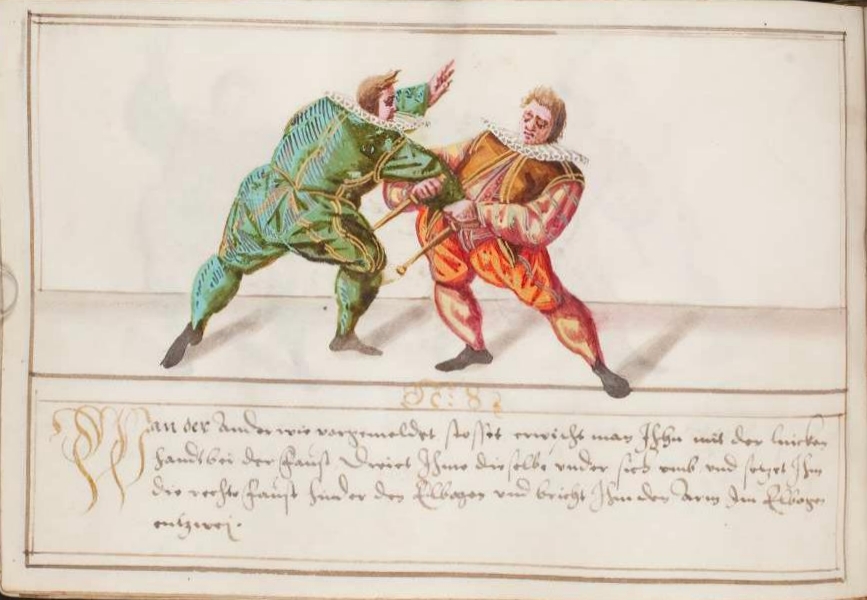 N: 8.
Wan der Ander wie vorgemeldet stosset erwischt man Ihn mit der lincken
handt bei der Faust dreiet Ihme dieselbe vnder sich vmb vnd setzet Ihm
die rechte Faust hinder den Elbogen vnd bricht Ihm den Arm Im Elbogen
entzwei.